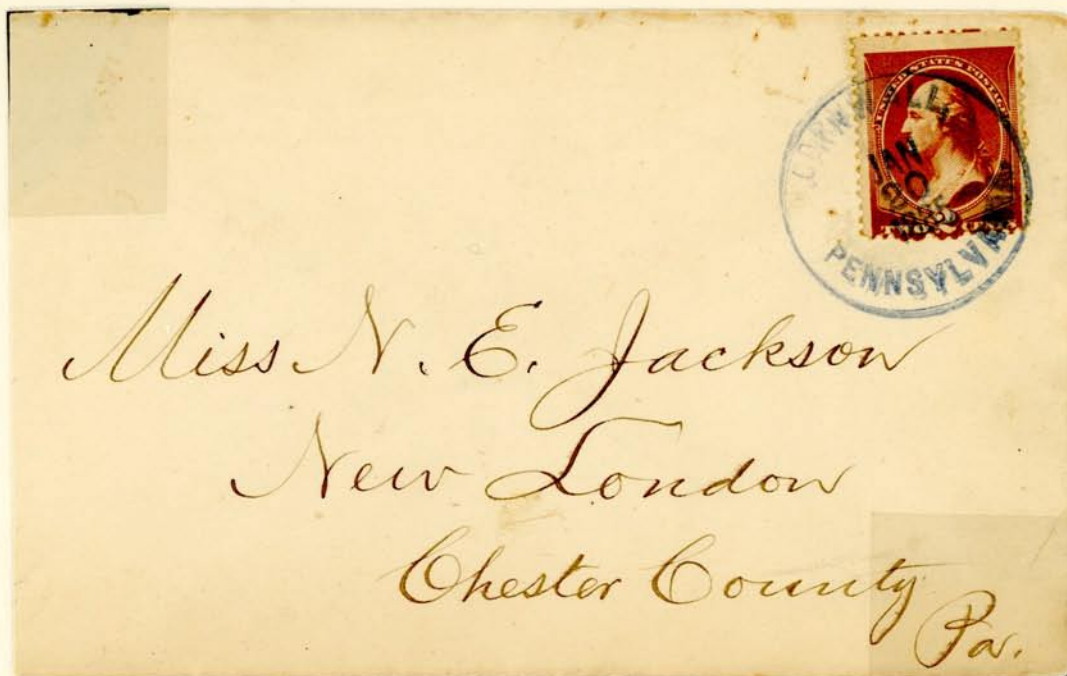 UNITED STATES POSTAGE
JAN
PENNSYLVANIA
Miss N. E. Jackson
New London
Chester County
Pa.